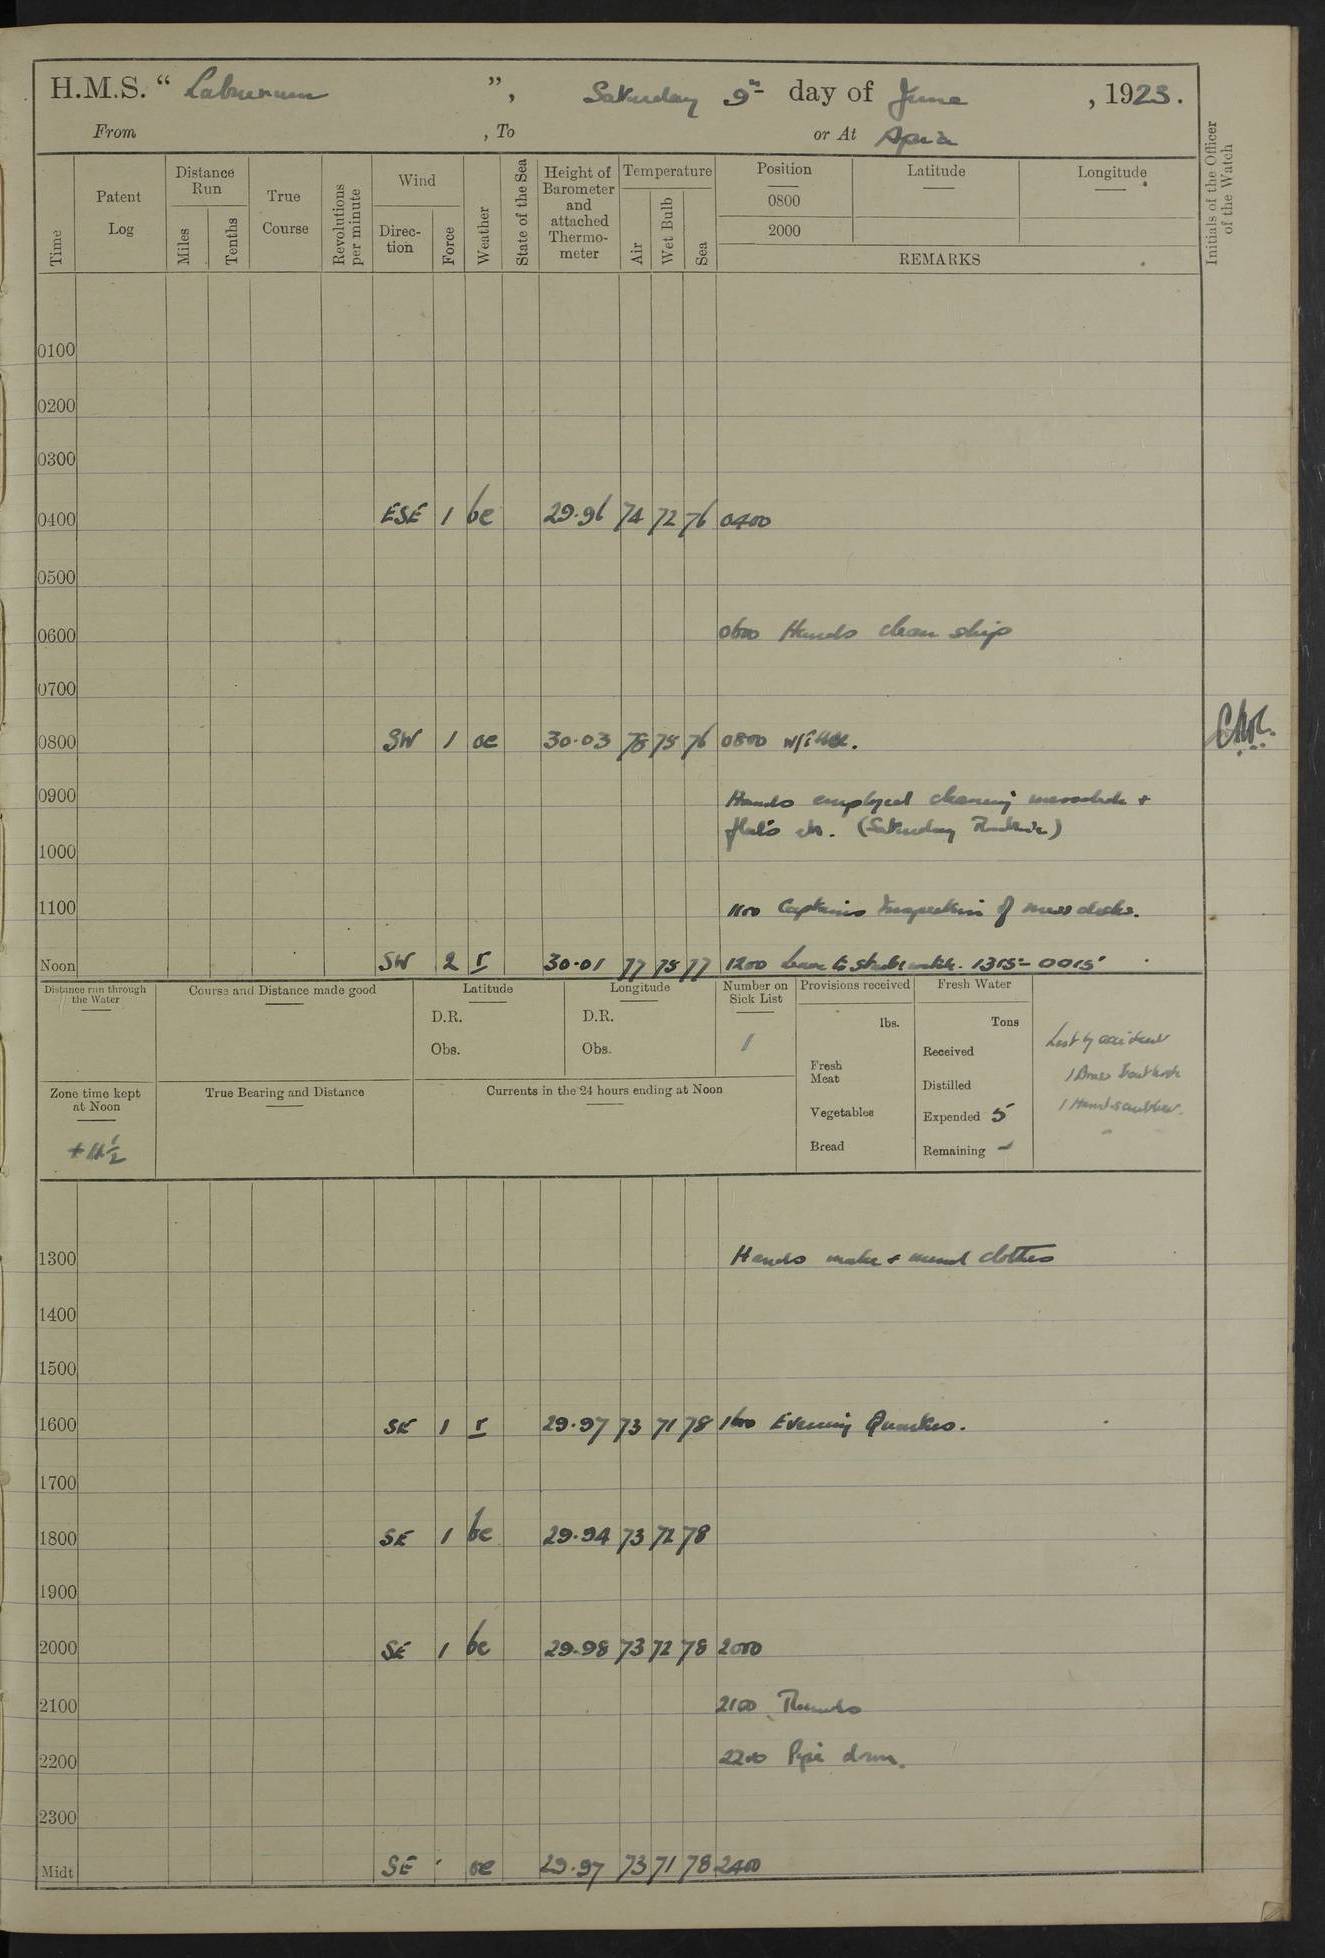 H.M.S. “ Laburnum ”, Saturday 9th day of June , 1923.
From , To or At Apia
Time
Patent Log
Distance Run
Miles
Tenths
True Course
Revolutions per minute
Wind
Direction
Force
Weather
State of the Sea
Height of Barometer and attached Thermometer
Temperature
Air
Wet Bulb
Sea
Position
0800
2000
Latitude
Longitude
REMARKS
Initials of the Officer of the Watch
0100
0200
0300
0400 ESE 1 bc 29.96 74 72 76 0400
0500
0600 0600 Hands clean ship
0700
0800 SW 1 oc 30.03 78 75 76 0800
0900 Hands employed cleaning messdeck +
flats etc. (Saturday Routine)
1000
1100 1100 Captains Inspection of mess decks.
Noon SW 2 r 30.01 77 75 77 1200 Leave to starb watch. 1315 - 0015
Distance run through the Water
Course and Distance made good
Latitude
D.R.
Obs.
Longitude
D.R.
Obs.
Number on Sick List
1
Provisions received
lbs.
Fresh Meat
Vegetables
Bread
Fresh Water
Tons
Received
Distilled
Expended 5
Remaining -
Lost by accident
1 Brass
1 Hand scrubber.
Zone time kept at Noon
+11 1/2
True Bearing and Distance
Currents in the 24 hours ending at Noon
1300 Hands make + mend clothes
1400
1500
1600 SE 1 r 29.97 73 71 78 1600 Evening Quarters.
1700
1800 SE 1 bc 29.94 73 72 78
1900
2000 SE 1 bc 29.98 73 72 78 2000
2100 2100 Rounds
2200 2200 Pipe down.
2300
Midt SE oc 29.97 73 71 78 2400